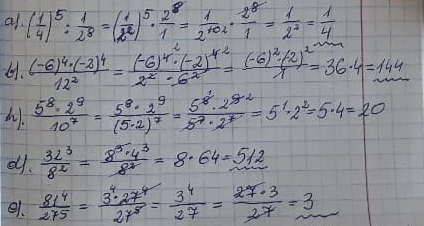 a). (1/4)^5 : 1/2^8 = (1/2^2)^5 · 2^8/1 = 1/2^10 2 · 2^8/1 = 1/2^2 = 1/4
b). (-6)^4·(-2)^4 / 12^2 = (-6)^4 2·(-2)^4 2 / 2^2 · 6^2 = (-6)^2·(2)^2 / 1 = 36·4 = 144
h). 5^8·2^9 / 10^7 = 5^8·2^9 / (5·2)^7 = 5^8 1·2^9 2 / 5^7·2^7 = 5^1·2^2 = 5·4 = 20
d). 32^3 / 8^2 = 8^3·4^3 / 8^2 = 8·64 = 512
e). 81^4 / 27^5 = 3^4·27^4 / 27^5 = 3^4 / 27 = 27·3 / 27 = 3